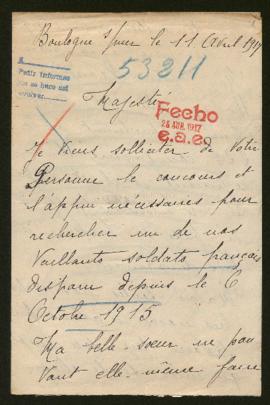 Boulogne s/mer le 11 Avril 1917
53211
Majesté
Fecho
26 ABR. 1917
e.a.e.
Je viens solliciter de Votre
Personne le concours et
l'appui nécessaires pour
rechercher un de nos
Vaillants soldats français
disparu depuis le 6
Octobre 1915
Ma belle sœur ne pou
vant elle même faire